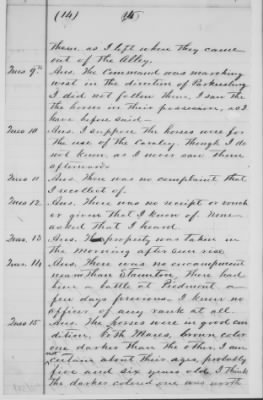 (14)
them, as I left when they came
out of the Alley.
Ques 9th Ans. The Command was marching
west in the direction of Parkersburg
I did not follow them, I saw the
the horses in their possession, as I
have before said—
Ques 10 Ans. I suppose the horses were for
the use of the Cavalry. Though I do
not know, as I never saw them
afterwards
Ques 11 Ans. There was no complaint that
I recollect of.
Ques 12 Ans. There was no receipt or vouch
er given that I know of. None
asked that I heard
Ques. 13 Ans. The property was taken in
the morning after sun rise.
Ques. 14 Ans. There was no encampment
nearer than Staunton, There had
been a battle at Piedmont a
few days previous. I knew no
officer of any rank at all.
Ques 15 Ans. The horses were in good con
dition, both Mares, brown color
one darker than the other. I am
not certain about their ages, probably
five and six years old, I think
the darker colored one was worth